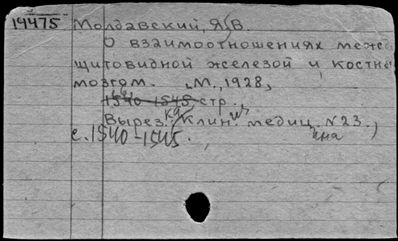 19475 Молдавский, Я.В.
О взаимоотношениях межд
щитовидной железой и костны
мозгом. М., 1928,
1540-1545 стр.,
Вырез. Клин. медиц. №23.,
с. 1540-1545.